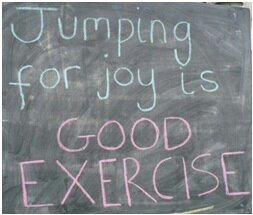 Jumping
for joy is
GOOD
EXERCISE